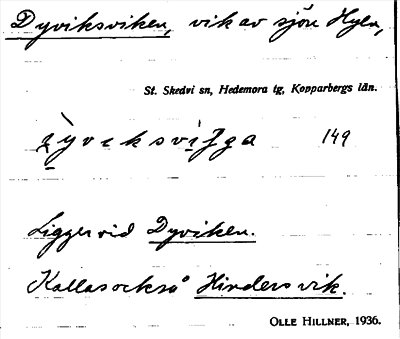 Dyviksviken, vik av sjön Hyen,
St. Skedvi sn, Hedemora tg, Kopparbergs län.
149
Ligger vid Dyviken.
Kallas också Hindersvik.
OLLE HILLNER, 1936.